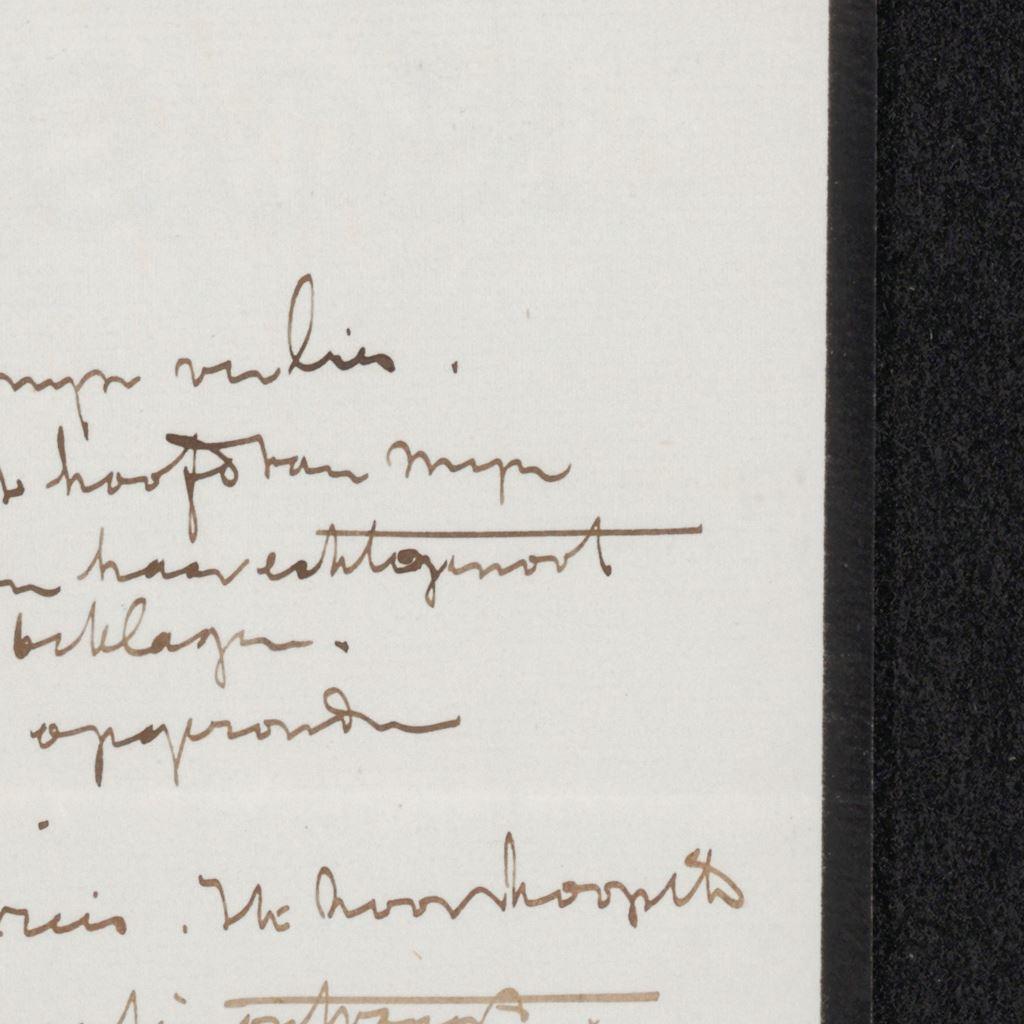 mijn verlies .
hoofd van mijn
haar echtgenoot
beklagen .
opgeronde
reis . Ik hoor